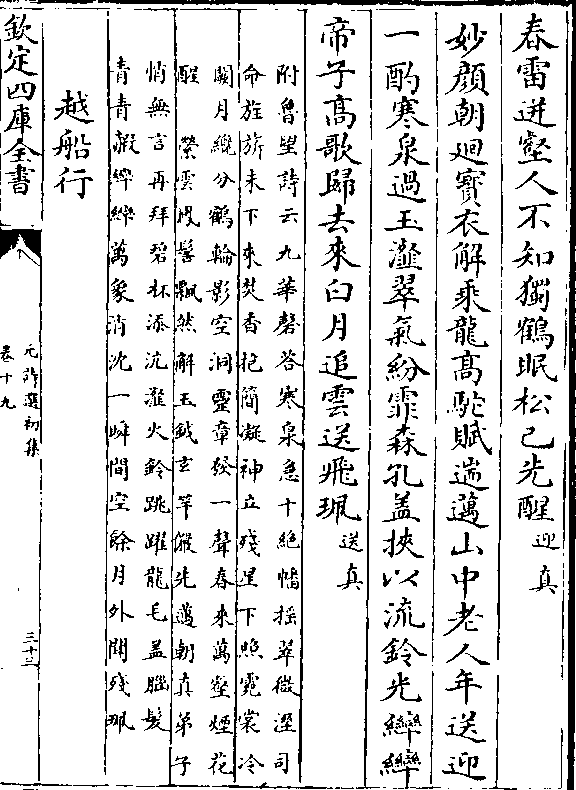 春雷迸壑人不知獨鶴眠松已先醒迎真
妙顔朝廻賓衣解乘龍髙駝賦遄邁山中老人年送迎
一酌寒泉過玉瀣翠氣紛霏森孔盖挾以流鈴光繂繂
帝子髙歌歸去來白月追雲送飛珮送真
附魯望詩云九華磬答寒泉急十絶幡揺翠微溼司
命旌旂未下來焚香抱簡凝神立殘星下照霓裳冷
闕月纔分鶴輪影空洞靈章發一聲春來萬壑煙花
醒 縈雲凝髻飄然解玉鉞玄竿儼先邁朝真弟子
悄無言再拜碧杯添沆瀣火鈴跳躍龍毛盖腦髮
青青䰐繂繂萬象消沈一瞬間空餘月外聞殘珮
越船行
欽定四庫全書
元詩選初集
卷十九
三十三